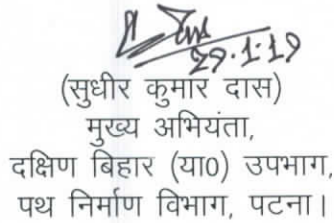 29.1.19
(सुधीर कुमार दास)
मुख्य अभियंता,
दक्षिण बिहार (या0) उपभाग,
पथ निर्माण विभाग, पटना।